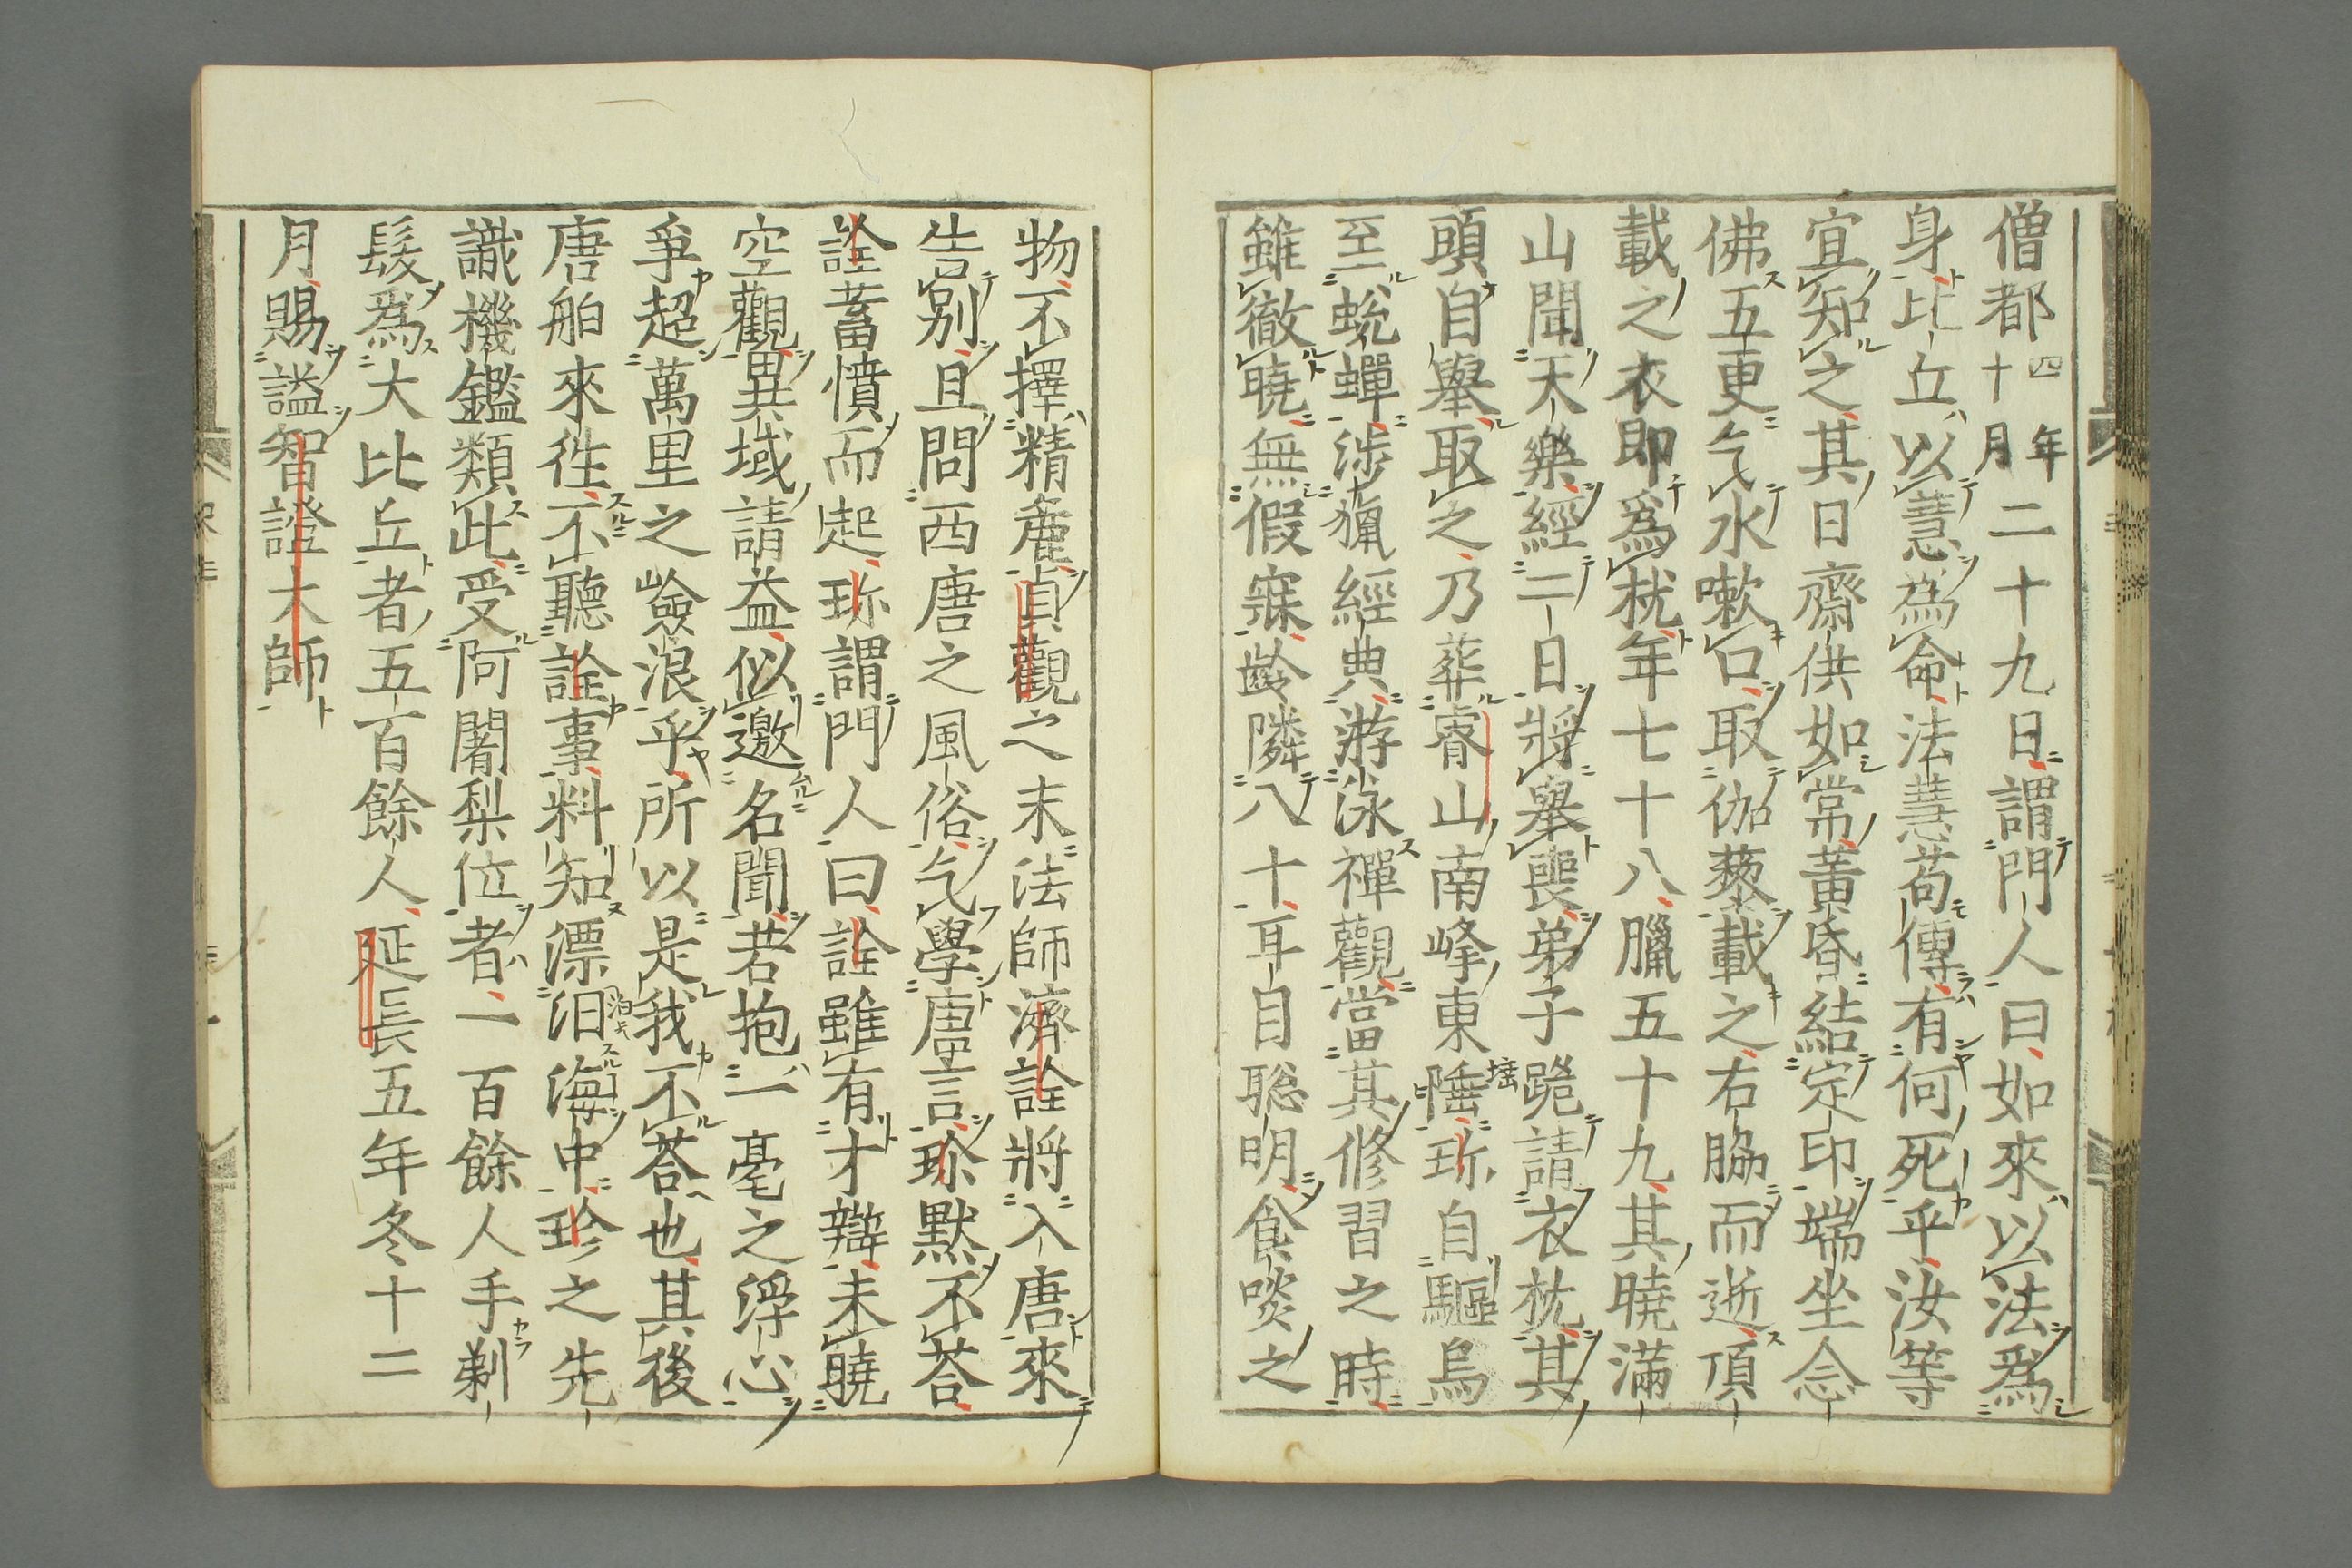 僧都四年十月二十九日謂門人曰如來以法爲
身比丘以慧爲命法慧苟傳有何死乎汝等
宜知之其日齋供如常黃昏結定印端坐念
佛五更乞水嗽口取伽藜載之右脇而逝頂
載之衣即爲枕年七十八臘五十九其曉滿
山聞天樂經二日將擧喪弟子跪請衣枕其
頭自擧取之乃葬睿山南峰東陲珎自驅烏
至蛻蟬涉獵經典游泳禪觀當其修習之時
雖徹曉無假寐齡隣八十耳目聡明食啖之
物不擇精麁貞觀之末法師濟詮將入唐來
告別且問西唐之風俗乞學唐言珎默不荅
詮蓄憤而起珎謂門人曰詮雖有才辯未曉
空觀異域請益似邀名聞若抱一毫之浮心
爭超萬里之嶮浪乎所以是我不荅也其後
唐舶來徃不聽詮事料知漂汨海中珍之先
識機鑑類此受阿闍梨位者一百餘人手剃
髮爲大比丘者五百餘人延長五年冬十二
月賜謚智證大師